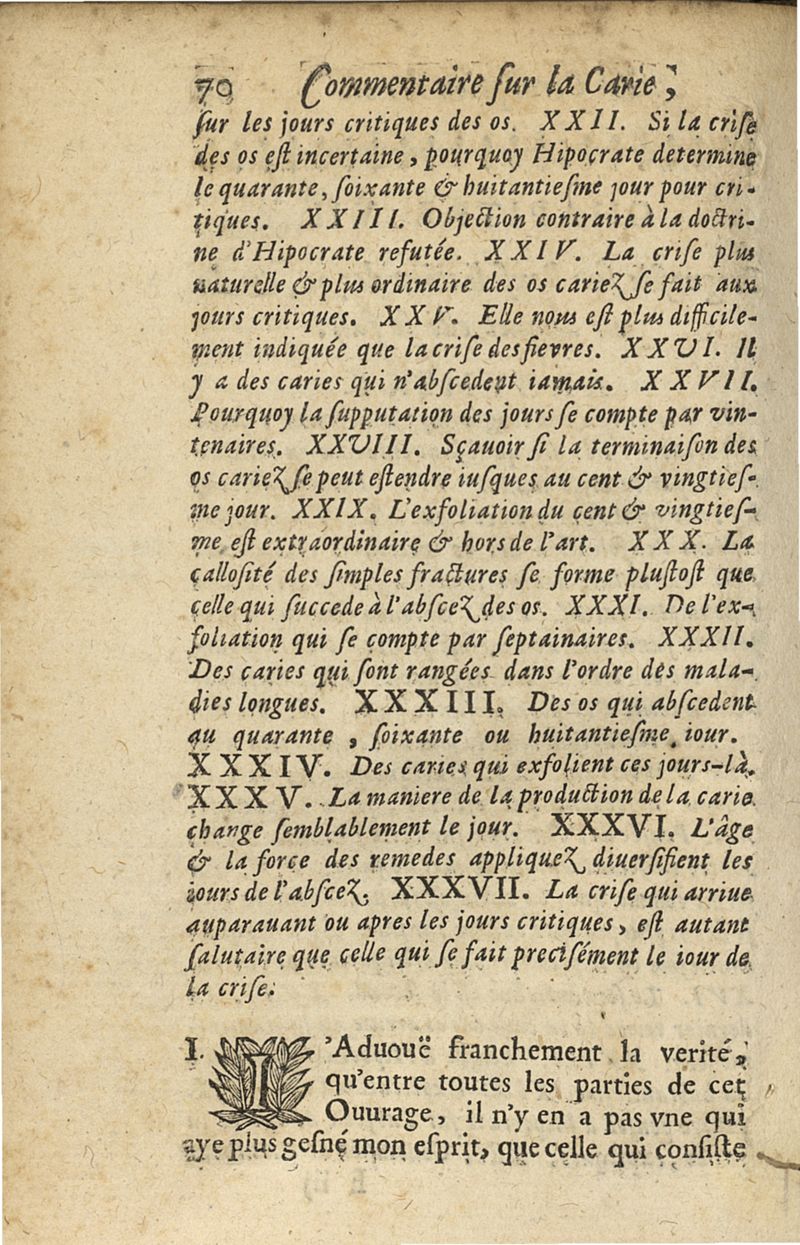 70 Commentaire ſur la Carie,
ſur les jours critiques des os. XXII. Si la criſe
des os eſt incertaine, pourquoy Hipocrate determine
le quarante, ſoixante & huitantieſme jour pour cri-
tiques. XXIII. Objection contraire à la doctri-
ne d'Hipocrate refutée. XXIV. La criſe plus
naturelle & plus ordinaire des os cariez ſe fait aux
jours critiques. XXV. Elle nous eſt plus difficile-
ment indiquée que la criſe des fievres. XXVI. Il
y a des caries qui n'abſcedent iamais. XXVII.
Pourquoy la ſupputation des jours ſe compte par vin-
tenaires. XXVIII. Sçauoir ſi la terminaiſon des
os cariez ſe peut eſtendre iuſques au cent & vingtieſ-
me jour. XXIX. L'exfoliation du cent & vingtieſ-
me eſt extraordinaire & hors de l'art. XXX. La
calloſité des ſimples fractures ſe forme pluſtoſt que
celle qui ſuccede à l'abſcez des os. XXXI. De l'ex-
foliation qui ſe compte par ſeptainaires. XXXII.
Des caries qui ſont rangées dans l'ordre des mala-
dies longues. XXXIII. Des os qui abſcedent
au quarante, ſoixante ou huitantieſme iour.
XXXIV. Des caries qui exfolient ces jours-là.
XXXV. La maniere de la production de la carie
change ſemblablement le jour. XXXVI. L'âge
& la force des remedes appliquez diuerſifient les
iours de l'abſcez. XXXVII. La criſe qui arriue
auparauant ou apres les jours critiques, eſt autant
ſalutaire que celle qui ſe fait preciſément le iour de
la criſe.
I. I'Aduouë franchement la verité,
qu'entre toutes les parties de cet
Ouurage, il n'y en a pas vne qui
aye plus geſné mon eſprit, que celle qui conſiſte